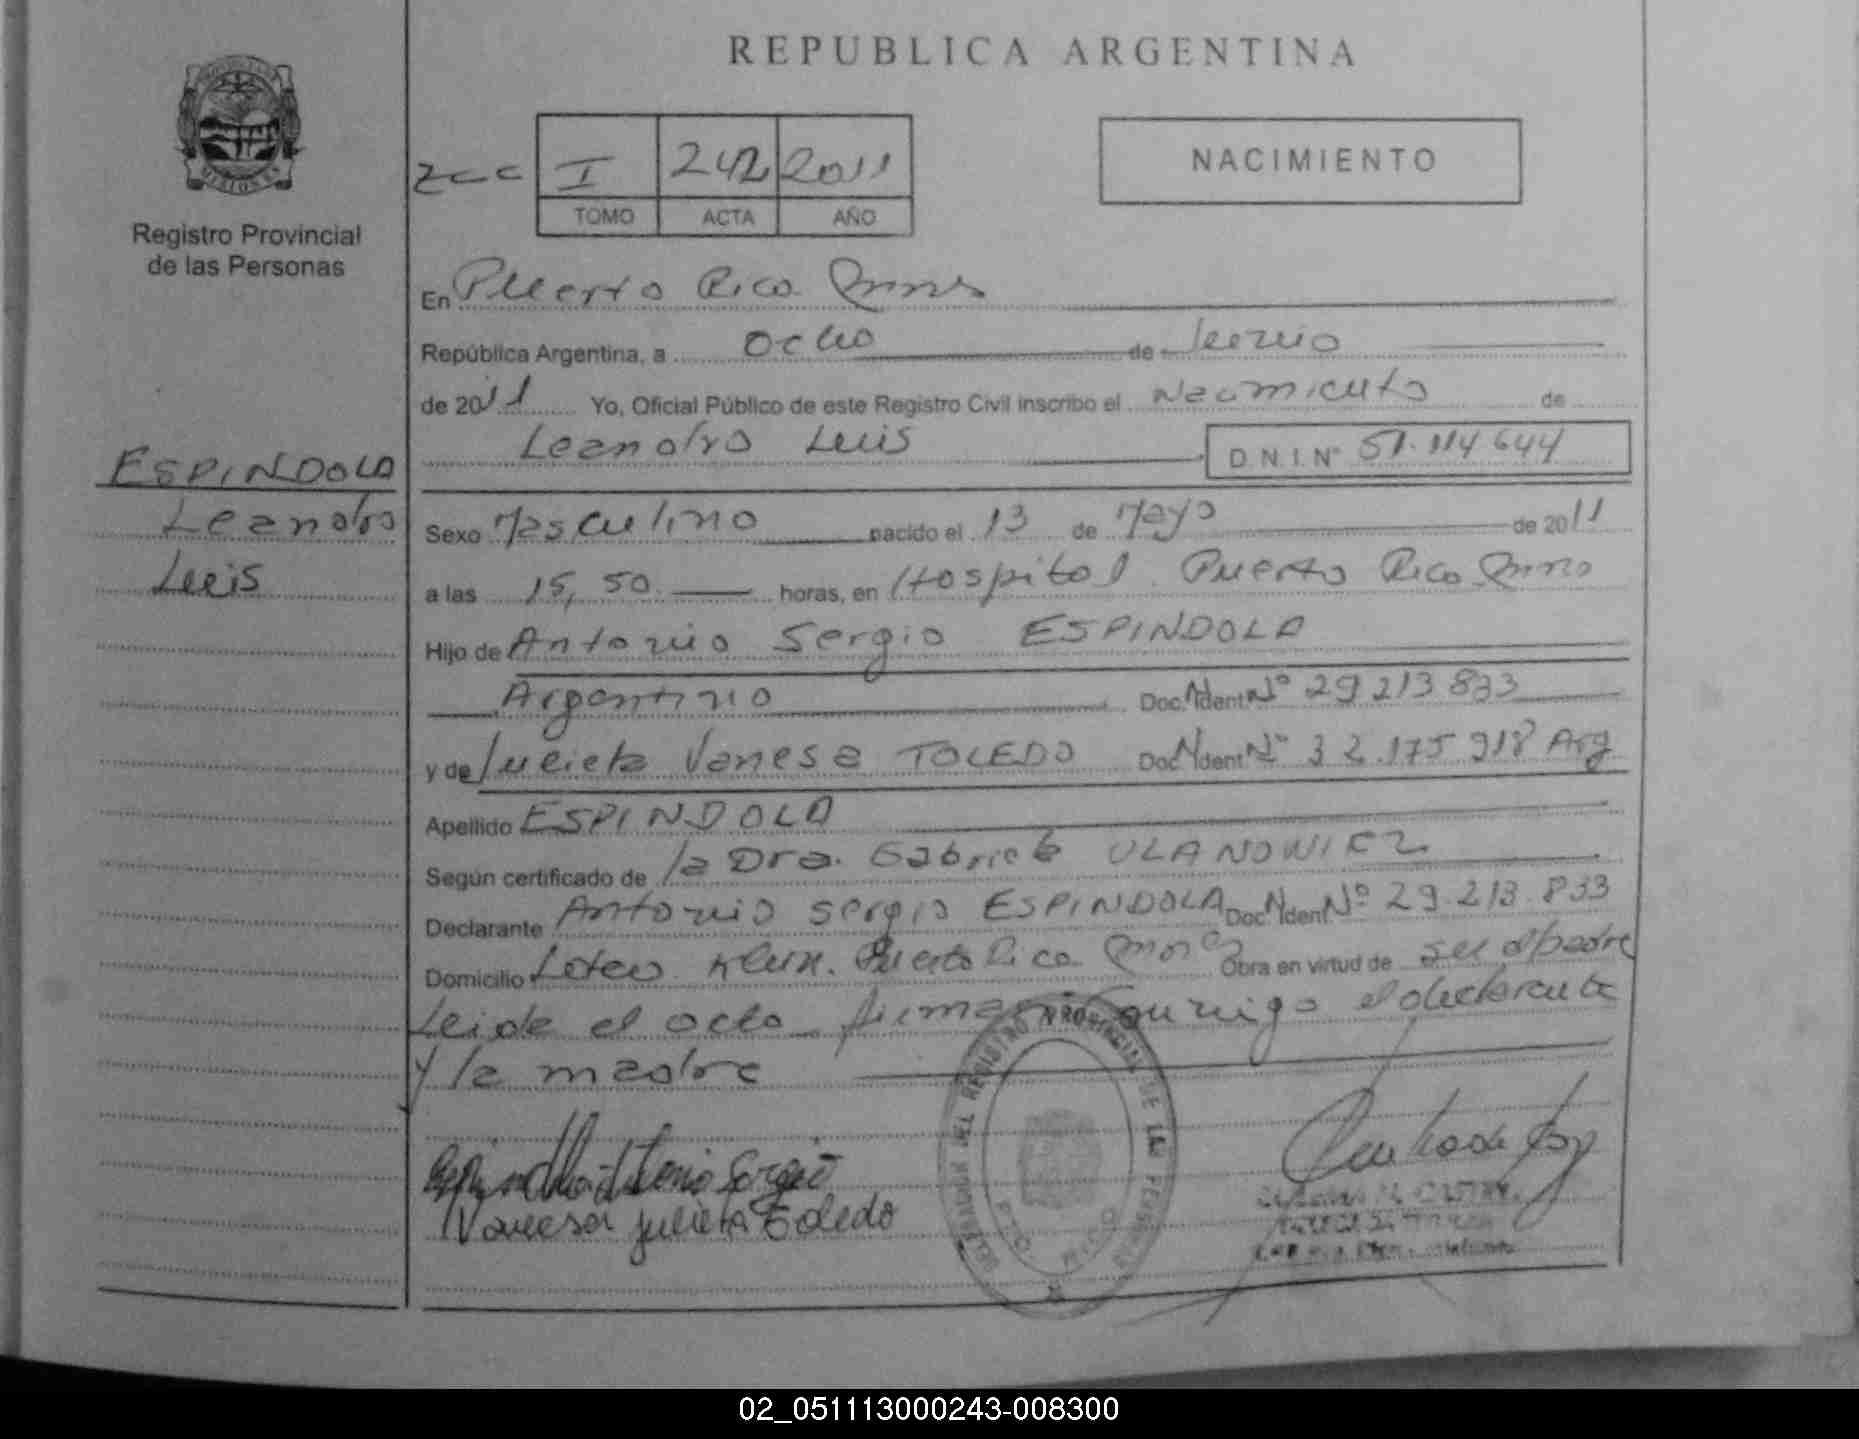 REPUBLICA ARGENTINA
Registro Provincial
de las Personas
I 242 2011
TOMO ACTA AÑO
NACIMIENTO
En Puerto Rico Mnes
República Argentina, a ocho de Junio
de 2011 Yo, Oficial Público de este Registro Civil inscribo el Nacimiento de
Leandro Luis D.N.I.Nº 51.114644
ESPINDOLA
Leandro
Luis
Sexo Masculino nacido el 13 de Mayo de 2011
a las 15,50 horas, en Hospital Puerto Rico Mnes
Hijo de Antonio Sergio ESPINDOLA
Argentino Doc. Ident Nº 29 213 833
y de Julieta Vanesa TOLEDO Doc Ident Nº 32.175 918 Arg
Apellido ESPINDOLA
Según certificado de la Dra. Gabriela ULANOWIEZ
Declarante Antonio Sergio ESPINDOLA Doc Ident Nº 29.213.833
Domicilio Loteo Puerto Rico Mnes Obra en virtud de ser el padre
Leida el acta firman conmigo el declarante
y la madre
Espindola Antonio Sergio
Vanesa Julieta Toledo
DEL REGISTRO PROVINCIAL DE LAS PERSONAS
PTO. RICO
02_051113000243-008300